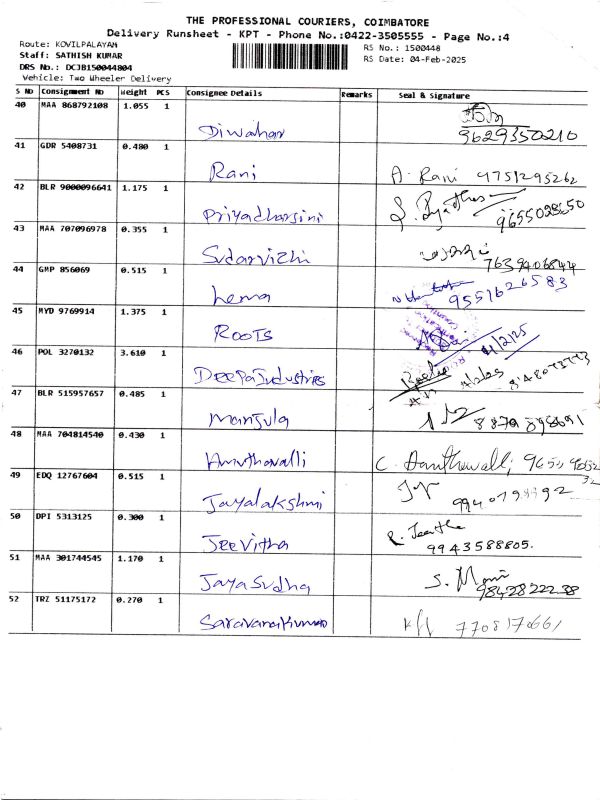 THE PROFESSIONAL COURIERS, COIMBATORE
Delivery Runsheet - KPT - Phone No.:0422-3505555 - Page No.:4
Route: KOVILPALAYAM
Staff: SATHISH KUMAR
DRS No.: DCJB150044804
Vehicle: Two Wheeler Delivery
RS No.: 1500448
RS Date: 04-Feb-2025
S NO Consignment No Weight PCS Consignee Details Remarks Seal & Signature
40 MAA 868792108 1.055 1 Diwahar 9629350210
41 GDR 5408731 0.480 1 Rani A. Rani 9751295262
42 BLR 9000096641 1.175 1 Priyadharsini
43 MAA 707096978 0.355 1 Sudarvizhi
44 GMP 856069 0.515 1 Lema 9551626583
45 MYD 9769914 1.375 1 ROOTS 4/2/25
46 POL 3270132 3.610 1 Deepa Industries
47 BLR 515957657 0.485 1 Manjula
48 MAA 704814540 0.430 1 Amuthavalli
49 EDQ 12767604 0.515 1 Jayalakshmi
50 DPI 5313125 0.300 1 Jeevitha 9943588805.
51 MAA 301744545 1.170 1 JayaSudha S. Mani
52 TRZ 51175172 0.270 1 Saravanakumar 7708170661